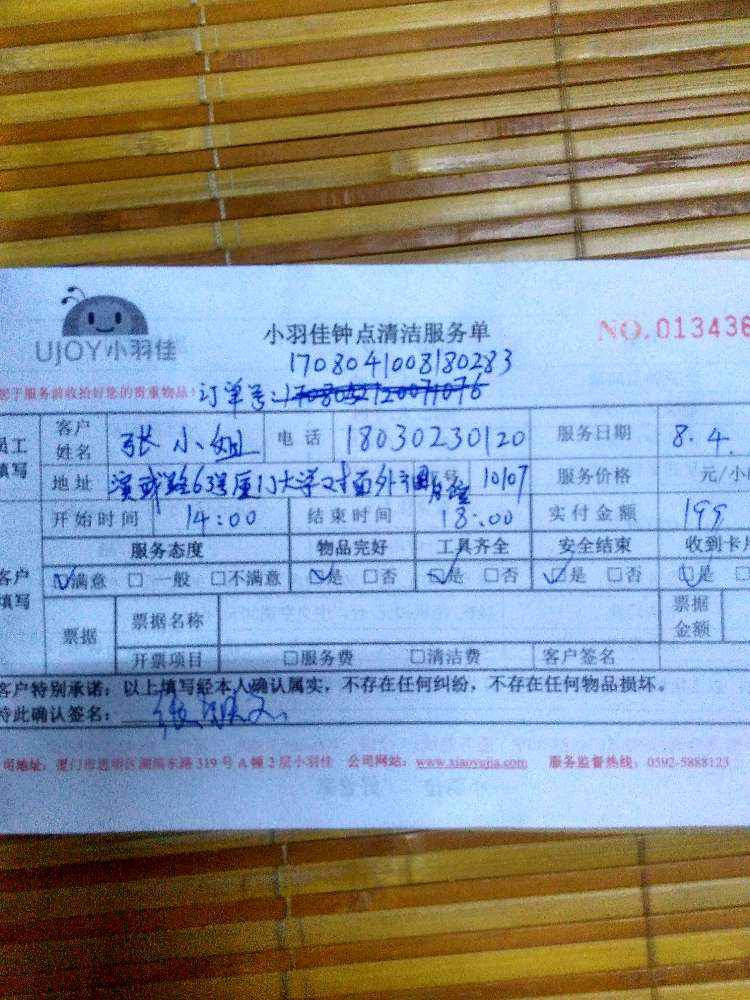 UJOY小羽佳
小羽佳钟点清洁服务单
NO.013436
1708041008180283
于服务前收拾好您的贵重物品!
订单号:
员工填写
客户姓名 张小姐 电话 18030230120 服务日期 8.4.
地址 63号厦门大学对面外 号 10107 服务价格 元/小
开始时间 14:00 结束时间 18:00 实付金额 199
客户填写
服务态度 物品完好 工具齐全 安全结束 收到卡片
☑满意 □一般 □不满意 ☑是 □否 ☑是 □否 ☑是 □否 ☑是 □
票据 票据名称 票据金额
开票项目 □服务费 □清洁费 客户签名
客户特别承诺:以上填写经本人确认属实,不存在任何纠纷,不存在任何物品损坏。
特此确认签名:
司地址:厦门市思明区湖滨东路319号A幢2层小羽佳 公司网站:www.xiaoyujia.com 服务监督热线:0592-5888123